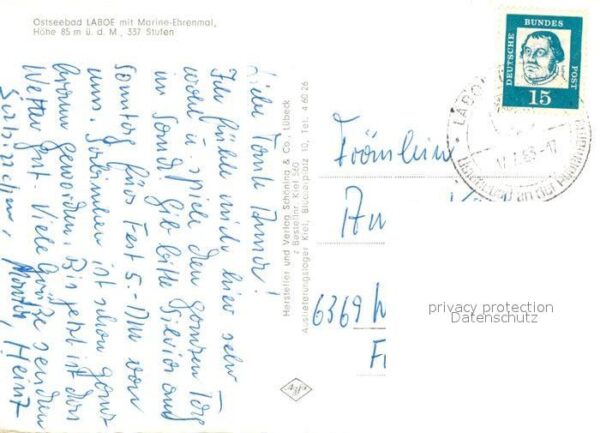 Ostseebad LABOE mit Marine-Ehrenmal,
Höhe 85 m ü. d. M., 337 Stufen
Liebe Tante Anna!
Ich fühle mich hier sehr
wohl u. spiele den ganzen Tag
im Sand. Gib bitte und
Sonntag fürs Fest 5.-DM von
uns. ist schon ganz
braun geworden. Bis jetzt ist das
Wetter gut. Viele Grüße senden
Martin, Heinz
Hersteller und Verlag Schöning & Co., Lübeck
Bestellnr. Kiel 560
Auslieferungslager Kiel, Blücherplatz 10, Tel. 4 60 26
Agfa
DEUTSCHE BUNDESPOST
15
LABOE
-17
Fräulein
An
6369
F
privacy protection
Datenschutz